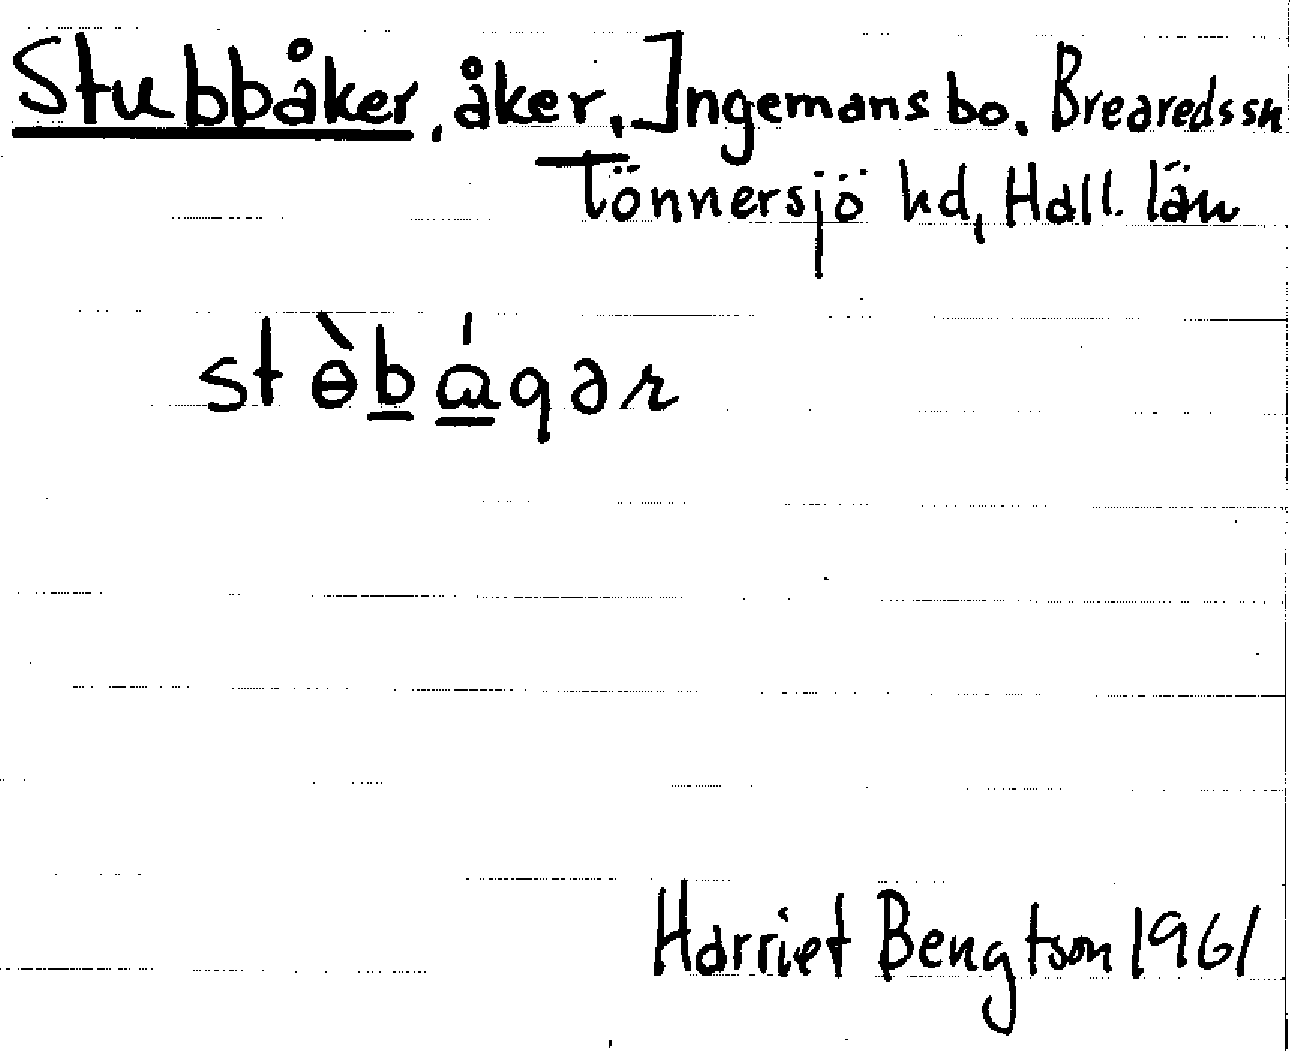 Stubbåker, åker, Ingemansbo. Breareds sn
Tönnersjö hd, Hall. län
stɵ̀b̲á̲qər
Harriet Bengtson 1961